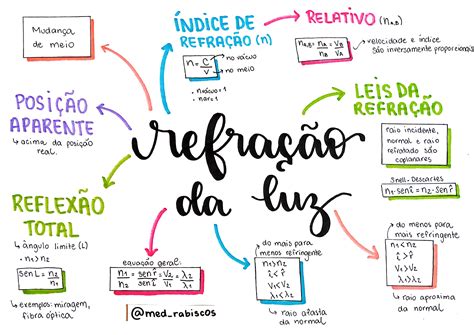 Mudança
de meio
ÍNDICE DE
REFRAÇÃO (n)
n = C/V
→ no vácuo
→ no meio
• nvácuo = 1
• nar ≈ 1
RELATIVO (nA,B)
nA,B = nA/nB = VB/VA
velocidade e índice
são inversamente proporcionais
POSIÇÃO
APARENTE
↳ acima da posição
real.
LEIS DA
REFRAÇÃO
raio incidente,
normal e raio
refratado são
coplanares
Snell-Descartes
n1·sen î = n2·sen r̂
refração
da luz
REFLEXÃO
TOTAL
↳ ângulo limite (L)
sen L = n2/n1
↳ exemplos: miragem,
fibra óptica
equação geral:
@med_rabiscos
do mais para
menos refringente
n1 > n2
V1 < V2
λ1 < λ2
↳ raio afasta
da normal
do menos para
mais refringente
n1 < n2
V1 > V2
λ1 > λ2
↳ raio aproxima
da normal